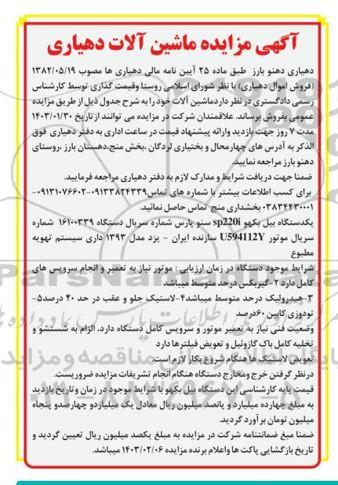 آگهی مزایده ماشین آلات دهیاری
دهیاری دهنو بارز طبق ماده ۲۵ آیین نامه مالی دهیاری ها مصوب ۱۳۸۲/۰۵/۱۹
(فروش اموال دهیاری) با نظر شورای اسلامی روستا وقیمت گذاری توسط کارشناس
رسمی دادگستری در نظر دارد ماشین آلات خود را به شرح جدول ذیل از طریق مزایده
عمومی بفروش برساند. علاقمندان شرکت در مزایده می توانند از تاریخ ۱۴۰۳/۰۱/۳۰
مدت ۷ روز جهت بازدید وارائه پیشنهاد قیمت در ساعت اداری به دفتر دهیاری فوق
الذکر به آدرس های چهارمحال و بختیاری لردگان ،بخش منج،دهستان بارز ،روستای
دهنو بارز مراجعه نمایید.
ضمنا جهت دریافت شرایط و مدارک لازم به دفتر دهیاری مراجعه فرمایید.
برای کسب اطلاعات بیشتر با شماره های تماس۰۹۱۳۳۸۲۴۳۳۹-۰۹۱۳۱۰۷۶۶۰۲-
۰۳۸۳۴۴۳۰۰۰۱ بخشداری منج تماس حاصل نمائید.
یکدستگاه بیل بکهو sp220i سنو پارس شماره سریال دستگاه ۱۶۱۰۰۳۳۹ شماره
سریال موتور U594112Y سازنده ایران - یزد مدل ۱۳۹۳ داری سیستم تهویه
مطبوع
شرایط موجود دستگاه در زمان ارزیابی : موتور نیاز به تعمیر و انجام سرویس های
کامل دارد ۲-گیربکس درحد متوسط میباشد
۳- هیدرولیک درحد متوسط میباشد۴-لاستیک جلو و عقب در حد ۴۰ درصد۵-
تودوزی کابین ۶۰درصد
وضعیت فنی نیاز به تعمیر موتور و سرویس کامل دستگاه دارد، الزام به شستشو و
تخلیه کامل باک گازوئیل و تعویض فیلترها دارد
تعویض لاستیک ها هنگام شروع بکار لازم است.
درنظر گرفتن خرج ومخارج دستگاه هنگام انجام تشریفات مزایده ضروریست.
قیمت پایه کارشناسی این دستگاه بیل بکهو با شرایط موجود در زمان وتاریخ بازدید
به مبلغ چهارده میلیارد و پانصد میلیون ریال معادل یک میلیاردو چهارصدو پنجاه
میلیون تومان برآورد گردید.
ضمنا مبغ ضمانتنامه شرکت در مزایده به مبلغ یکصد میلیون ریال تعیین گردید و
تاریخ بازگشایی پاکت ها واعلام برنده مزایده ۱۴۰۳/۰۲/۰۶ میباشد.